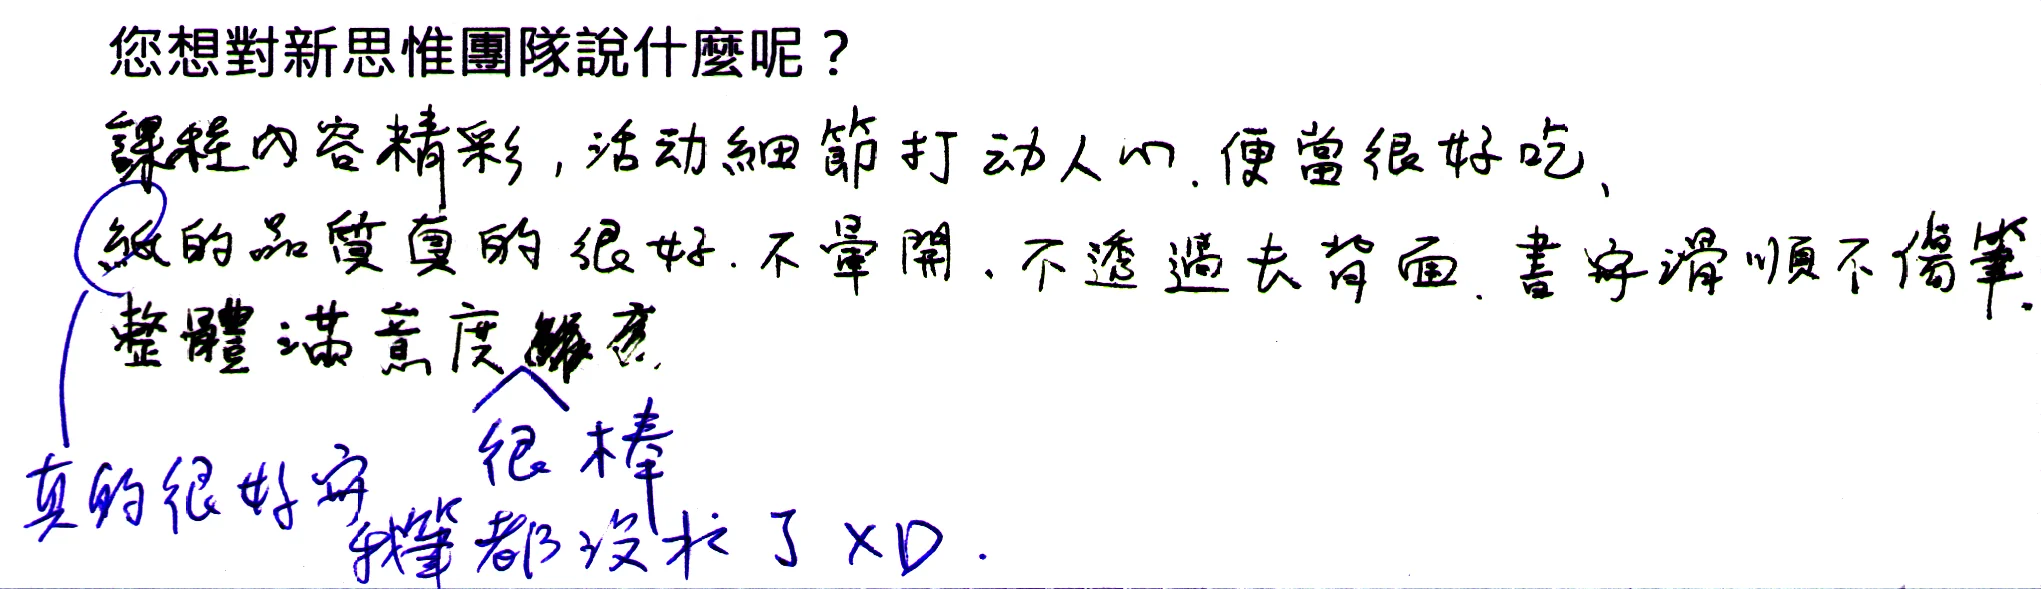 您想對新思惟團隊說什麼呢？
課程內容精彩,活动細節打动人心.便當很好吃、
紙的品質真的很好.不暈開、不透過去背面.書寫滑順不傷筆.
整體滿意度
很棒
真的很好寫
我筆都沒水了XD.